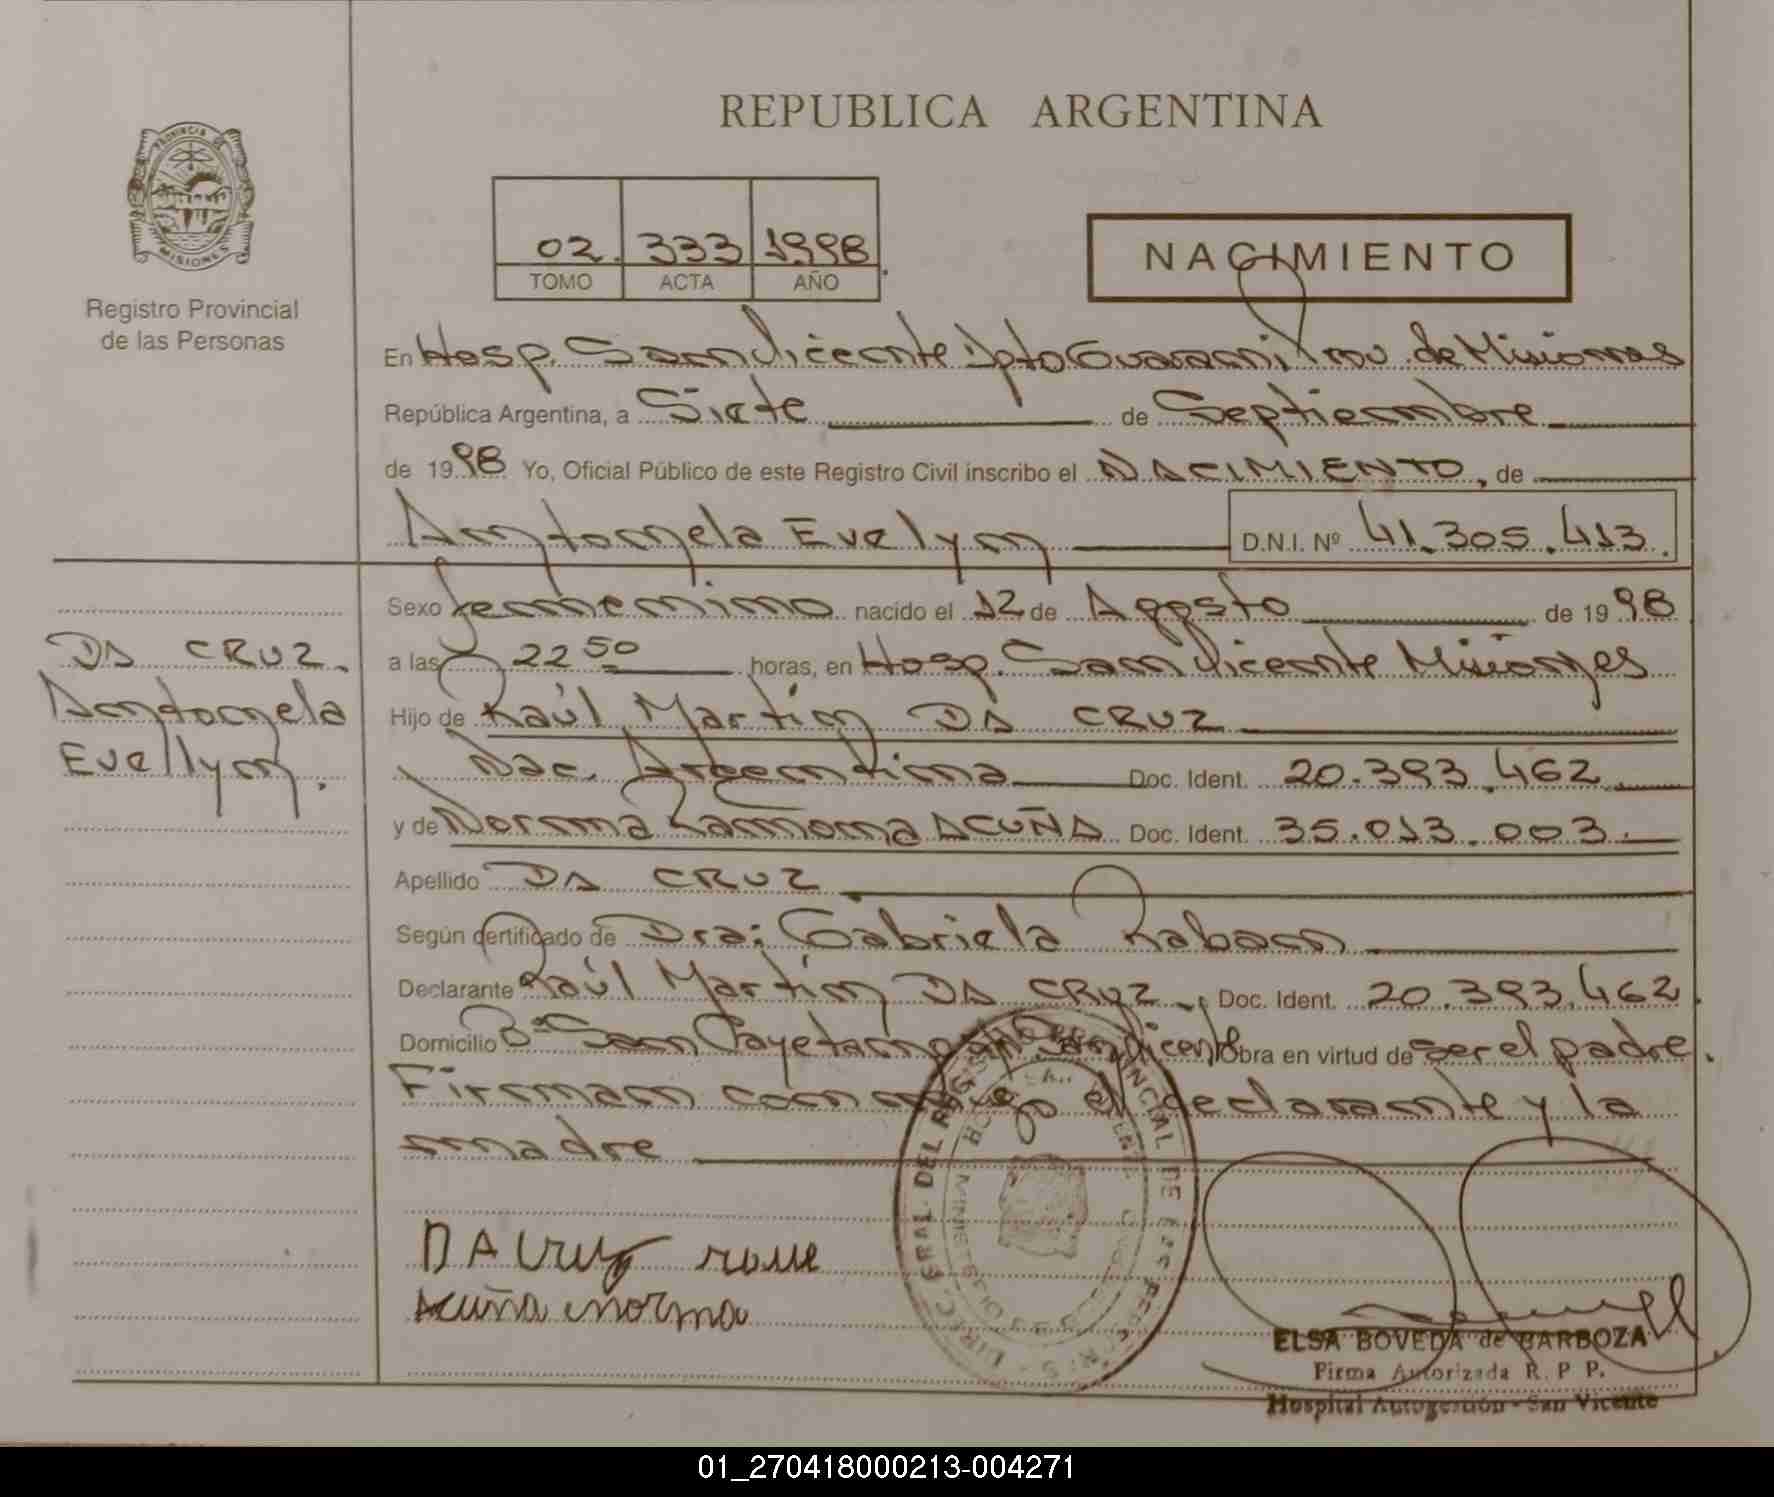 REPUBLICA ARGENTINA
PROVINCIA DE MISIONES
Registro Provincial
de las Personas
02. 333 1998
TOMO ACTA AÑO
NACIMIENTO
En Hosp. San Vicente Dpto Guarani Prov. de Misiones
República Argentina, a Siete de Septiembre
de 1998 Yo, Oficial Público de este Registro Civil inscribo el NACIMIENTO, de
Antonela Evelyn D.N.I. Nº 41.305.413.
Sexo femenino nacido el 12 de Agosto de 1998
DA CRUZ.
Antonela
Evellyn.
a las 22 50 horas, en Hosp. San Vicente Misiones
Hijo de Raúl Martin DA CRUZ
Nac. Argentina Doc. Ident. 20.393.462
y de Norma Ramona ACUÑA Doc. Ident. 35.013.003.
Apellido DA CRUZ
Según certificado de Dra: Gabriela
Declarante Raúl Martin DA CRUZ., Doc. Ident. 20.393.462.
Domicilio Bº San Cayetano San Vicente Obra en virtud de ser el padre.
Firman conmigo el declarante y la
madre
DA Cruz
Acuña norma
ELSA BOVEDA de BARBOZA
Firma Autorizada R. P P.
Hospital Autogestión - San Vicente
01_270418000213-004271